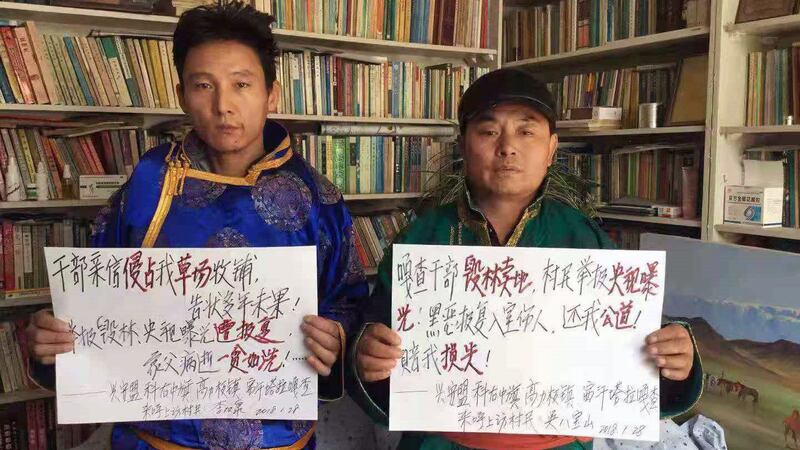 干部亲信侵占我草场收铺,
告状多年未果!
举报「毁林」央视曝光遭报复
家父病逝一贫如洗!……
——兴安盟科右中旗高力板镇 塔拉嘎查
来呼上访村民 2018.1.28
嘎查干部毁林卖地,村民举报央视曝
光!黑恶报复入室伤人,还我公道!
赔我损失!
——兴安盟科右中旗高力板镇 塔拉嘎查
来呼上访村民 吴八宝山 2018.1.28